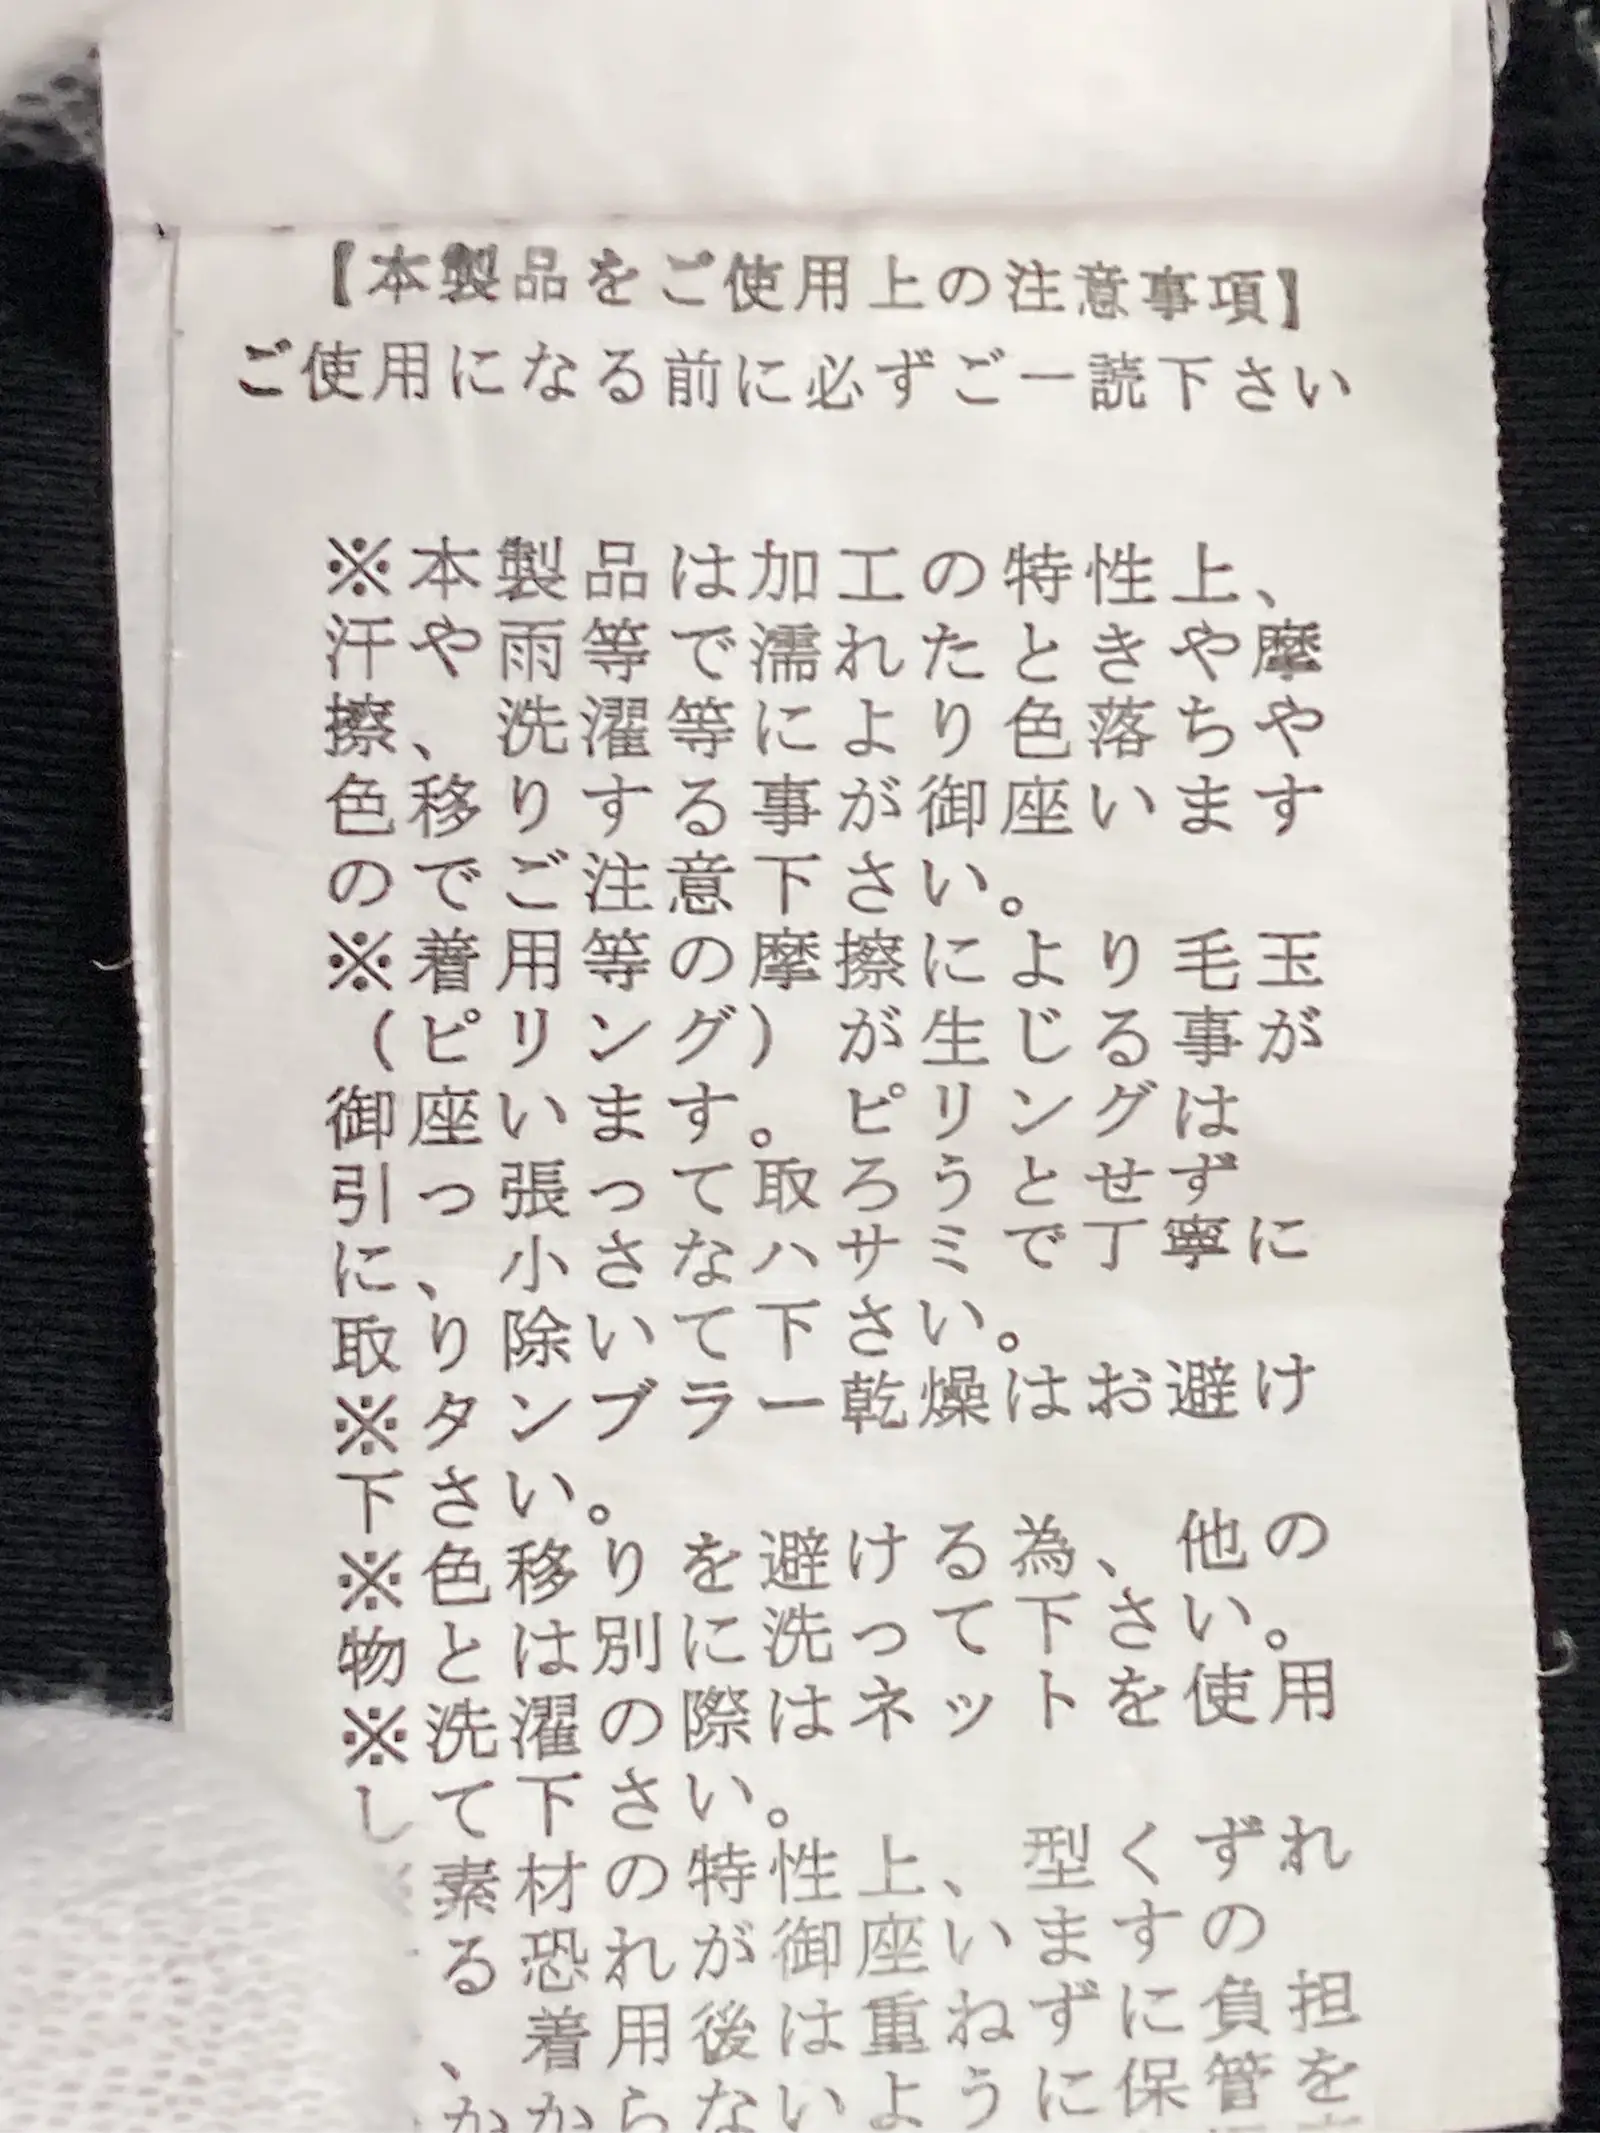 【本製品をご使用上の注意事項】
ご使用になる前に必ずご一読下さい
※本製品は加工の特性上、
汗や雨等で濡れたときや摩
擦、洗濯等により色落ちや
色移りする事が御座います
のでご注意下さい。
※着用等の摩擦により毛玉
（ピリング）が生じる事が
御座います。ピリングは
引っ張って取ろうとせず
に、小さなハサミで丁寧に
取り除いて下さい。
※タンブラー乾燥はお避け
下さい。
※色移りを避ける為、他の
物とは別に洗って下さい。
※洗濯の際はネットを使用
して下さい。
素材の特性上、型くずれ
る恐れが御座いますの
、着用後は重ねずに負担
かからないように保管を